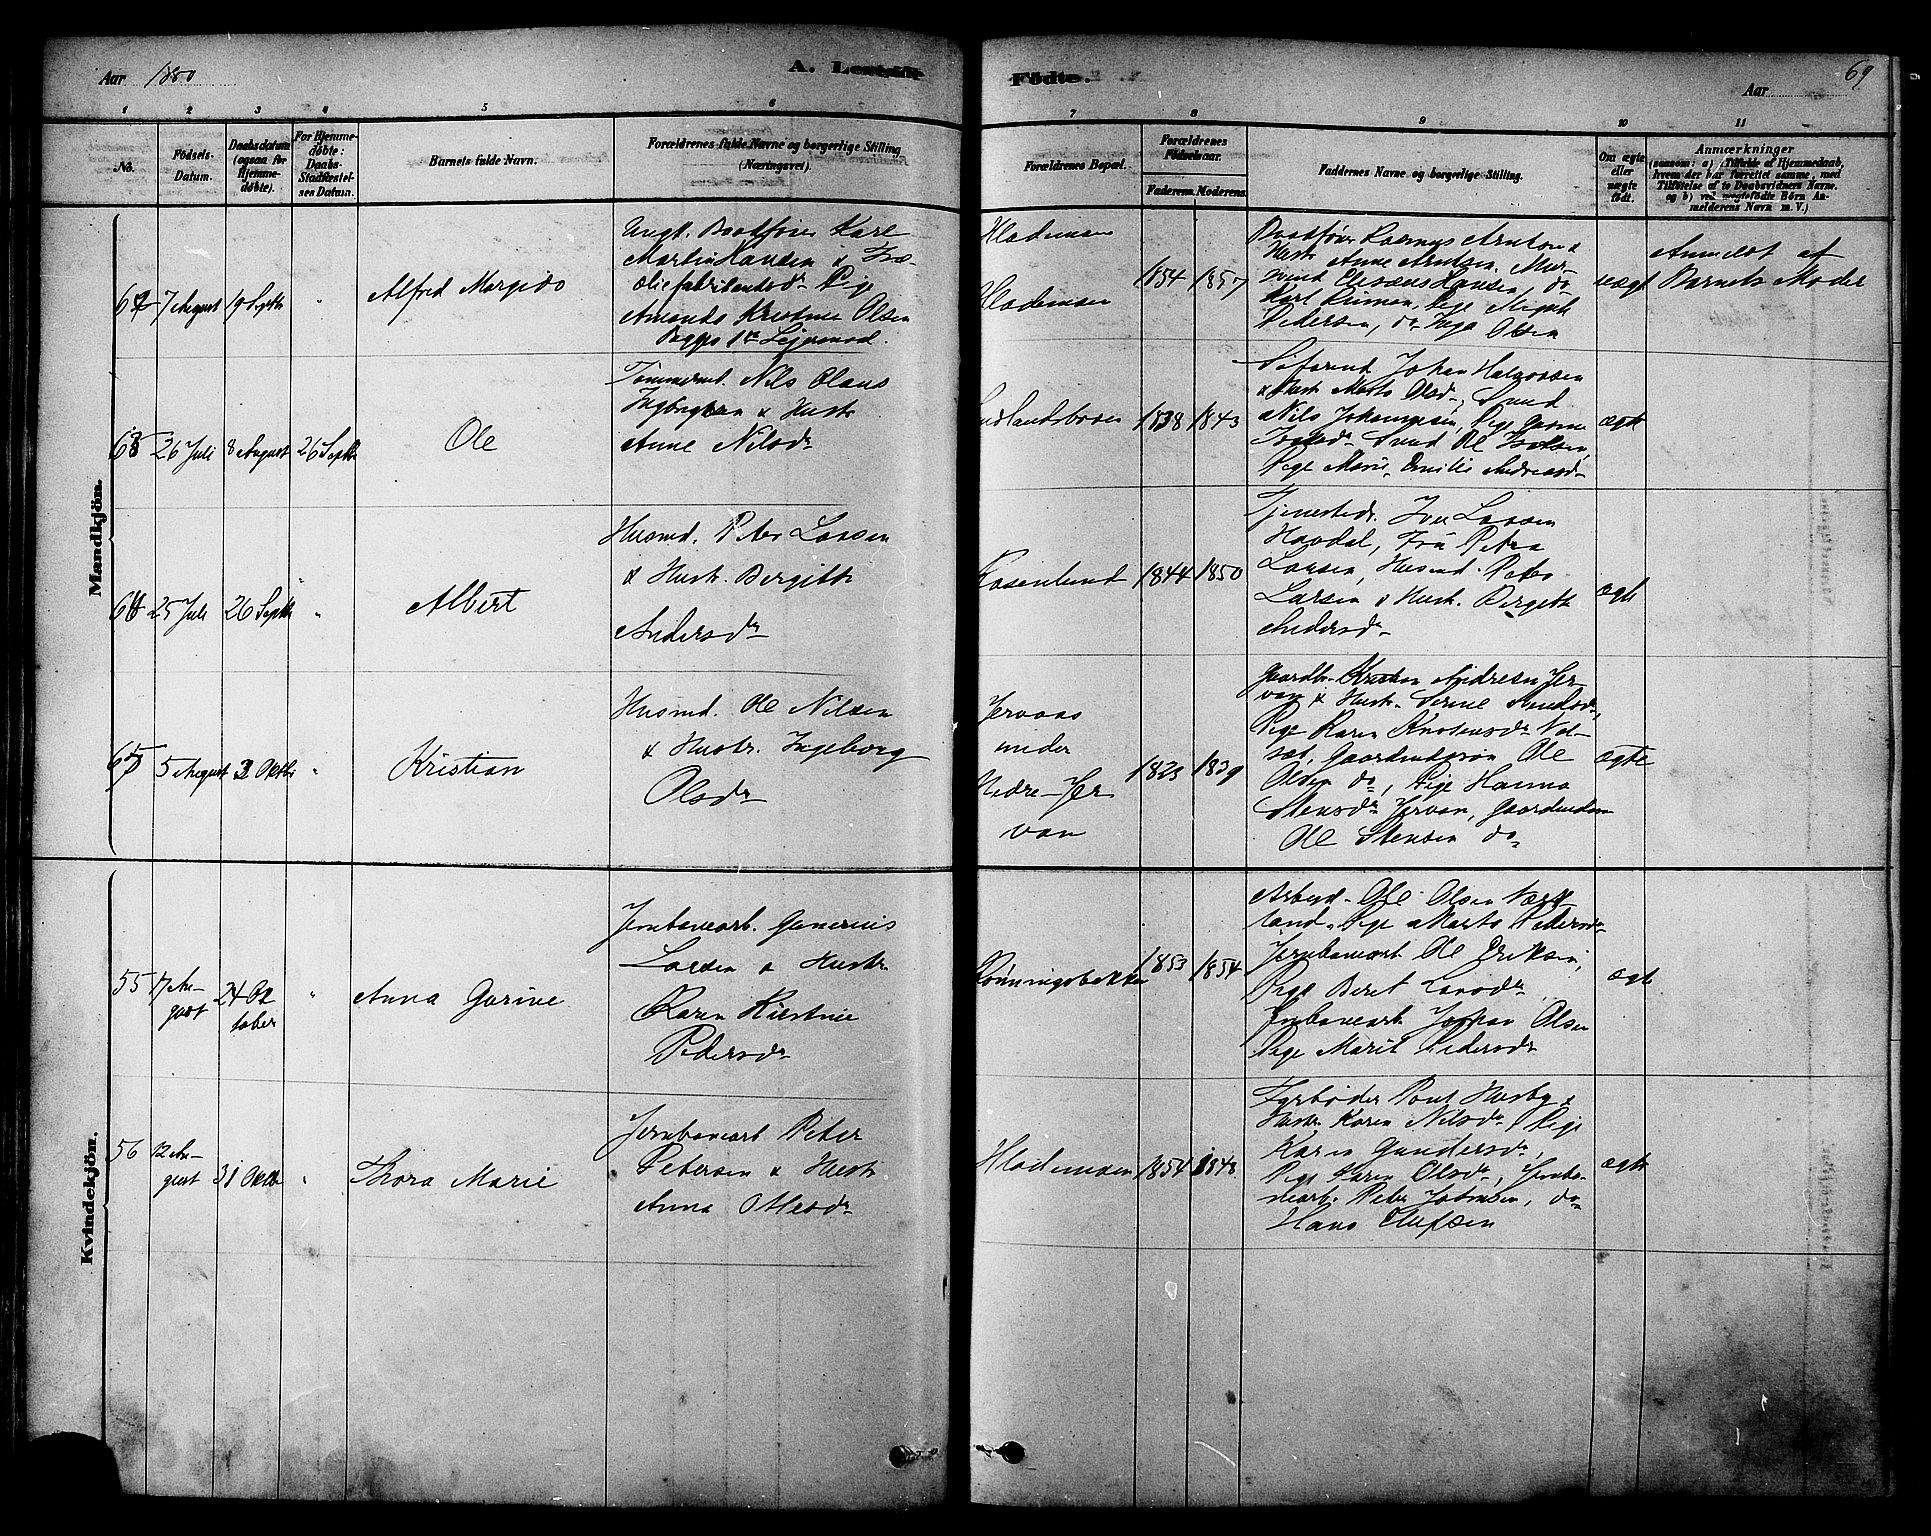 Aar 1880
A. Levende
Födte.
Aar
69
1 2 3 4 5 6
7 8 9 10 11
No.
Födsels-Datum.
Daabsdatum (ogsaa for Hjemme-döbte).
For Hjemme-döbte: Daabs-Stadfæstel-ses Datum.
Barnets fulde Navn.
Forældrenes fulde Navne og borgerlige Stilling (Næringsvei).
Forældrenes Bopæl.
Forældrenes Födselsaar.
Faderens. Moderens.
Faddernes Navne og borgerlige Stilling.
Om ægte eller uægte födt.
Anmærkninger
(saasom: a) Tilfælde af Hjemmedaab,
hvem der har forrettet samme, med
Tilföielse af to Daabsvidners Navne.
og b) ved uægtefödte Börn An-
melderens Navn m. V.)
Mandkjön.
62 7 August 19 Septbr " Alfred Margido
Ungk. Baadfører Karl
Martin Hansen & Træ-
oliefabrikantsdr Pige
Amanda Kristine Olsen
Begges 1ste Leiermaal.
Hlademoen
Hlademoen
1854 1857
Baadfører Rasmus Arntsen &
Hustr Anne Arntsen, Mur-
svend Elisæus Hansen, do
Karl Simon, Pige
Pedersen, do Inga Olsen
uægt
Anmeldt af
Barnets Moder
63 26 Juli 8 August 26 Septbr Ole
Tømmermd. Nils Olaus
Ingbrigtsen & Hustr
Anne Nilsdr
1838 1843
Johan Halvorsen
& Hustr Marta Olsdr, Svend
Nils Johannesen, Pige
Svend Ole
Pige Marie, Emilie Andreasdr
ægte
64 25 Juli 26 Septbr " Albert
Husmd. Peter Larsen
& Hustr. Bergitte
Andersdr
Rosenlund
1844 1850
Tjenestedr. Iver Larsen
Havdal, Fru Petra
Larsen, Husmd. Peter
Larsen & Hustr. Bergitte
Andersdr
ægte
65 5 August 3 Oktbr " Kristian
Husmd. Ole Nilsen
& Hustr. Ingeborg
Olsdr
Jervaas
under
Nedre-Jer
van
1823 1839
Gaardbr. Kristian Andresen Jer-
van & Hustr. Serine
Pige Karen
Gaardmandssøn Ole
Olsen do, Pige Hanna
Stensdr Jervan, Gaardmdssøn
Ole Stensen do
ægte
Kvindekjön.
55 17 Au-
gust 24 Ok
tober " Anna Gurine
Jernbanearb. Generius
Larsen & Hustr
Karen Kirstine
Pedersdr
Rønningsbakken
1853 1854
Arbmd. Ole Olsen
land, Pige Marta Pedersdr
Jernbanearb Ole Eriksen,
Pige Beret Larsdr
Jernbanearb Johan Olsen
Pige Marit Pedersdr
ægte
56 12 Au-
gust 31 Oktbr " Thora Marie
Jernbanearb Peter
Petersen & Hustr
Anna Ottesdr
Hlademoen
1854 1848
Fyrbøder Paul Husby &
Hustr Karen Nilsdr, Pige
Karen Gundersdr,
Pige Karen Olsdr, Jernba-
nearb. Peter Johnsen, do
Hans Olufsen
ægte